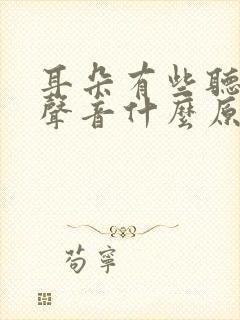 耳朵有些聽
聲音什麼原
苟寧